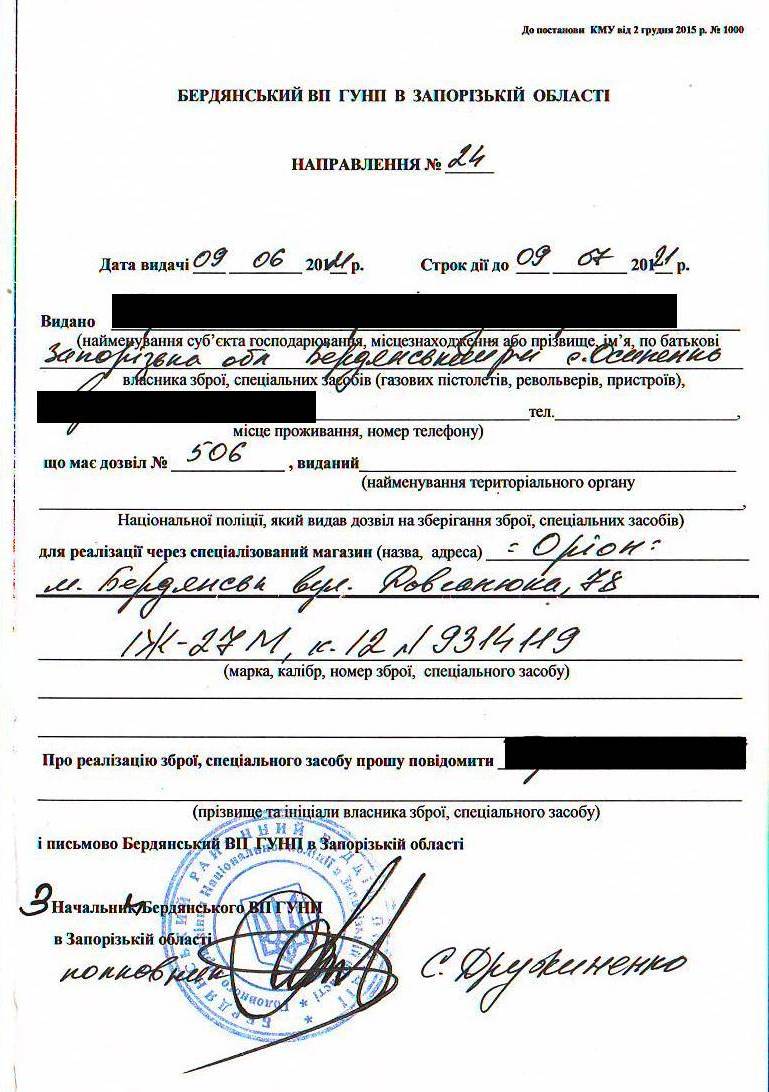 До постанови КМУ від 2 грудня 2015 р. № 1000
БЕРДЯНСЬКИЙ ВП ГУНП В ЗАПОРІЗЬКІЙ ОБЛАСТІ
НАПРАВЛЕННЯ № 24
Дата видачі 09 06 2021 р. Строк дії до 09 07 2021 р.
Видано
(найменування суб’єкта господарювання, місцезнаходження або прізвище, ім’я, по батькові
Запорізька обл с. Осипенко
власника зброї, спеціальних засобів (газових пістолетів, револьверів, пристроїв),
тел.
місце проживання, номер телефону)
що має дозвіл № 506, виданий
(найменування територіального органу
Національної поліції, який видав дозвіл на зберігання зброї, спеціальних засобів)
для реалізації через спеціалізований магазин (назва, адреса) "Оріон"
м. Бердянськ вул. Довганюка, 78
ІЖ-27М, к. 12 № 9314119
(марка, калібр, номер зброї, спеціального засобу)
Про реалізацію зброї, спеціального засобу прошу повідомити
(прізвище та ініціали власника зброї, спеціального засобу)
і письмово Бердянський ВП ГУНП в Запорізькій області
З Начальник Бердянського ВП ГУНП
в Запорізькій області
С. Дружиненко